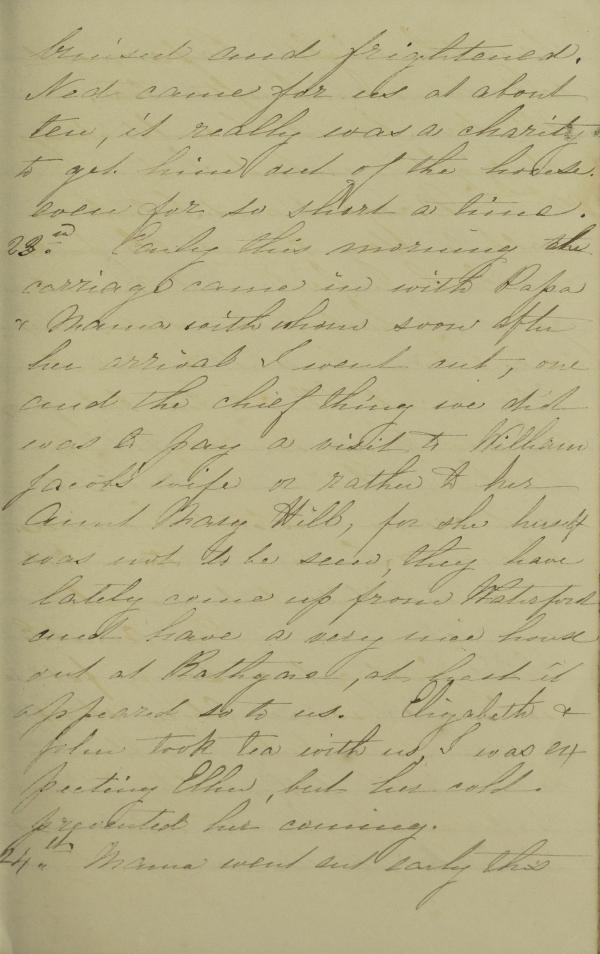 bruised and frightened.
Ned came for us at about
ten, it really was a charity
to get him out of the house.
even for so short a time.
23.rd Early this morning the
carriage came in with Papa
& Mama with whom soon after
her arrival I went out, one
and the chief thing we did
was to pay a visit to William
Jacob's wife or rather to her
Aunt Mary Hill, for she herself
was not to be seen, they have
lately come up from Waterford
and have a very nice house
out at Rathgar, at least it
appeared so to us. Elizabeth &
John took tea with us, I was ex
pecting Ellen, but her cold
prevented her coming.
24.th Mama went out early this